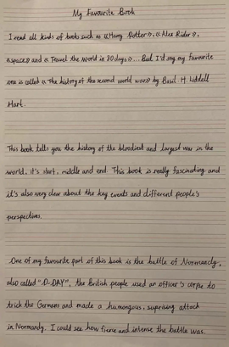 My Favourite Book
I read all kinds of books such as «Harry Potter», «Alex Rider»,
and «Travel the World in 80 days»... But I'd say my favourite
one is called «The history of the second world war» by Basil H liddell
Hart.
This book tells you the history of the bloodiest and largest war in the
world, it's start, middle and end. This book is really fascinating and
it's also very clear about the key events and different people's
perspectives.
One of my favourite part of this book is the battle of Normandy,
also called "D-DAY", the British people used an officer's corpse to
trick the Germans and made a humongous, suprising attack
in Normandy. I could see how fierce and intense the battle was.